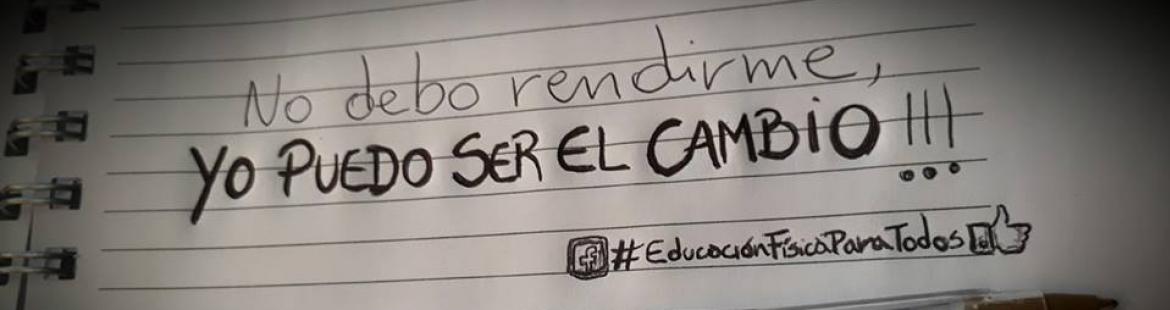 No debo rendirme,
YO PUEDO SER EL CAMBiO !!!
#EducaciónFísicaParaTodos